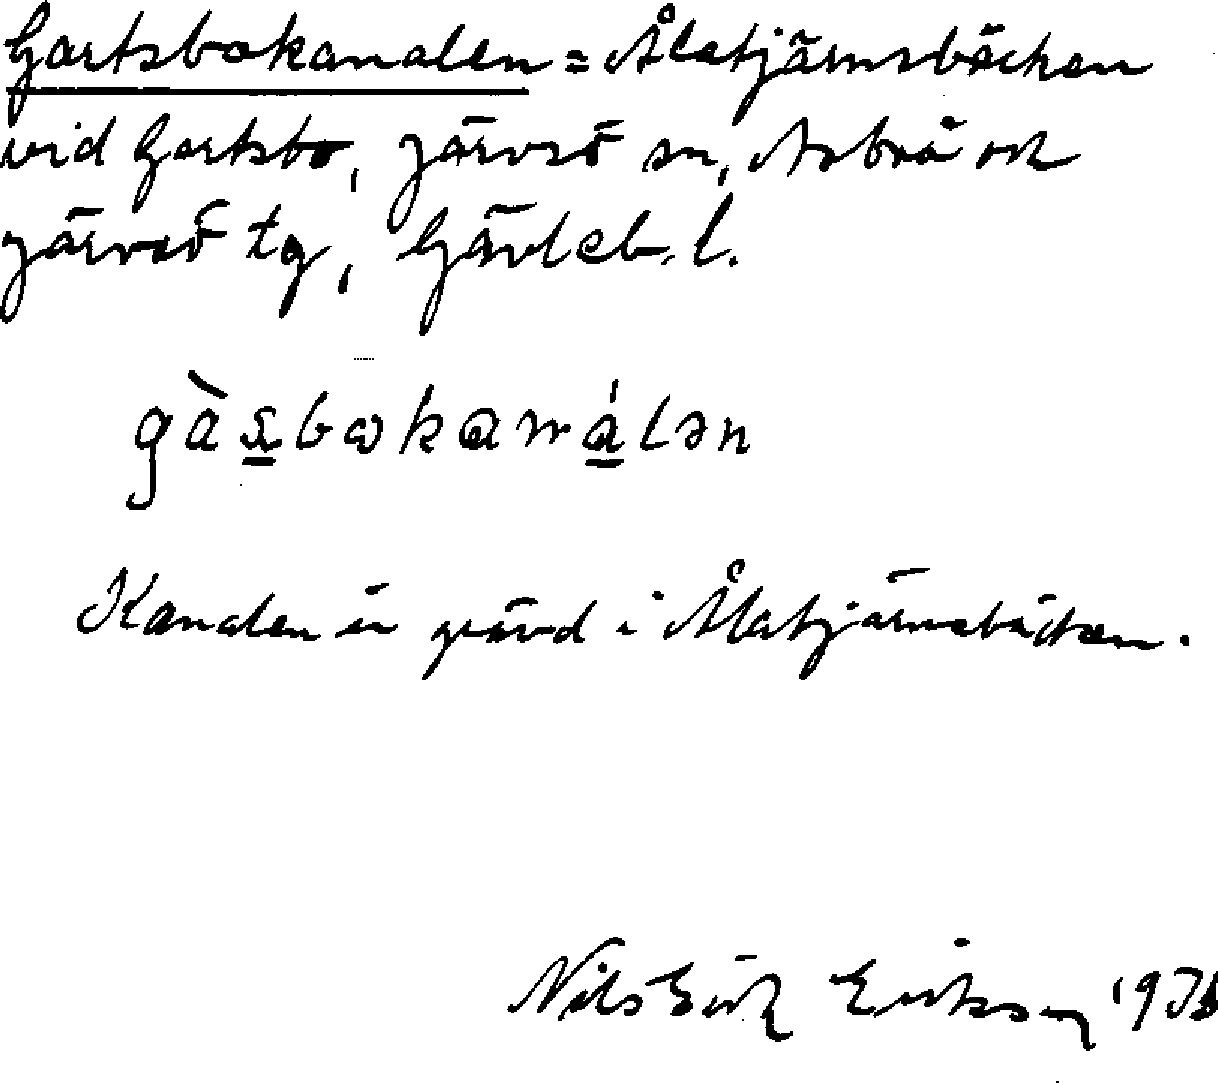 Gartsbokanalen = Åletjärnsbäcken
vid Gartsbo, Järvsö sn, Arbrå och
Järvsö tg, Gävleb. l.
Kanalen är grävd i Åletjärnsbäcken.
Nils Erik Eriksson